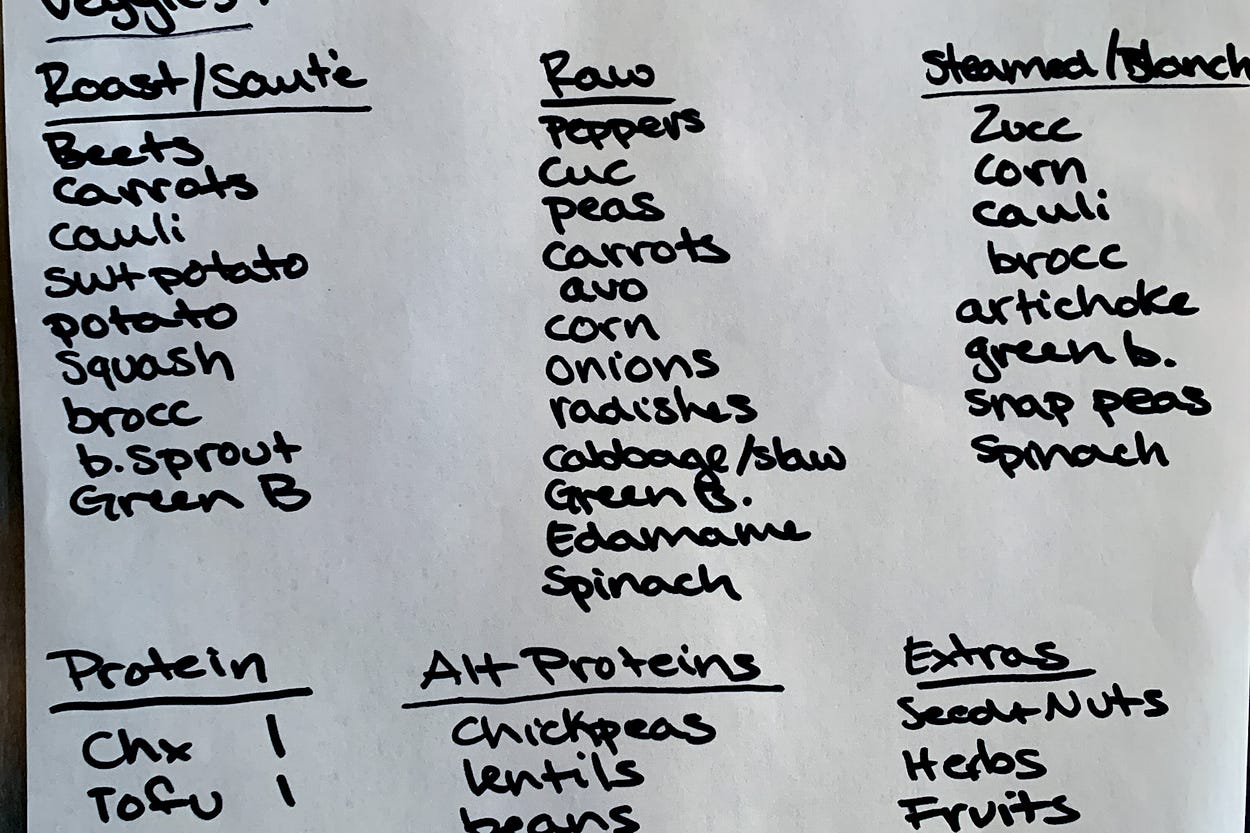 Veggies:
Roast/Sauté
Beets
carrots
cauli
swt potato
potato
squash
brocc
b. sprout
Green B
Raw
Peppers
cuc
peas
carrots
avo
corn
onions
radishes
cabbage/slaw
Green B.
Edamame
Spinach
Steamed/Blanch
Zucc
corn
cauli
brocc
artichoke
green b.
snap peas
Spinach
Protein
Chx |
Tofu |
Alt Proteins
Chickpeas
lentils
beans
Extras
Seed+Nuts
Herbs
Fruits